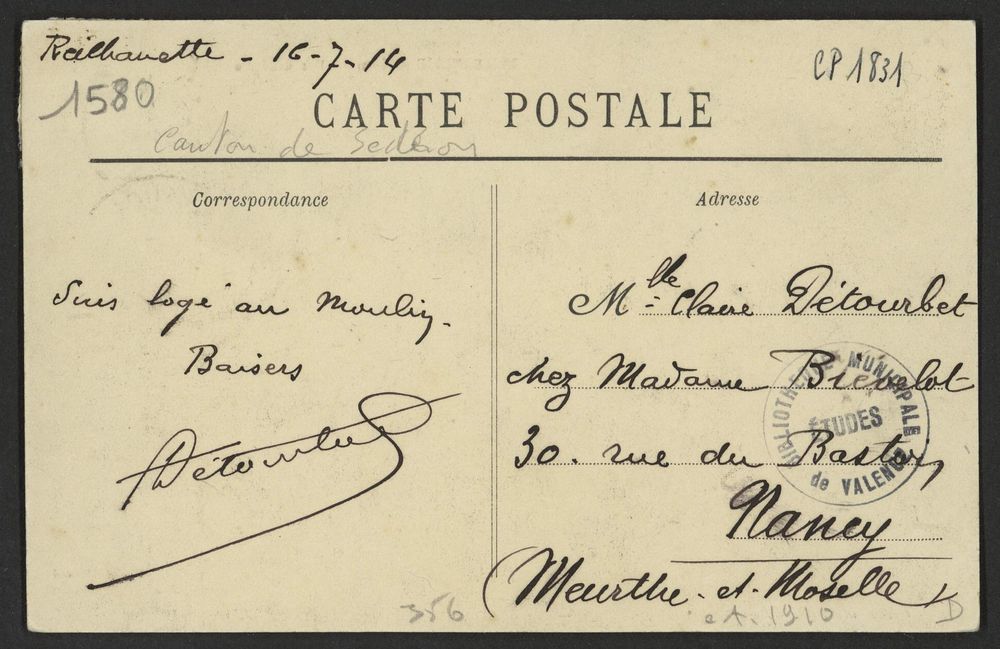 Reilhanette - 16-7-14
CP 1831
1580
CARTE POSTALE
Canton de Sederon
Correspondance
Adresse
Suis logé au Moulin.
Baisers
Détourbet
Mlle Claire Détourbet
chez Madame
30. rue du Bastion
Nancy
(Meurthe-et-Moselle)
BIBLIOTHEQUE MUNICIPALE
ÉTUDES
de VALENCE
356
ct. 1910
D